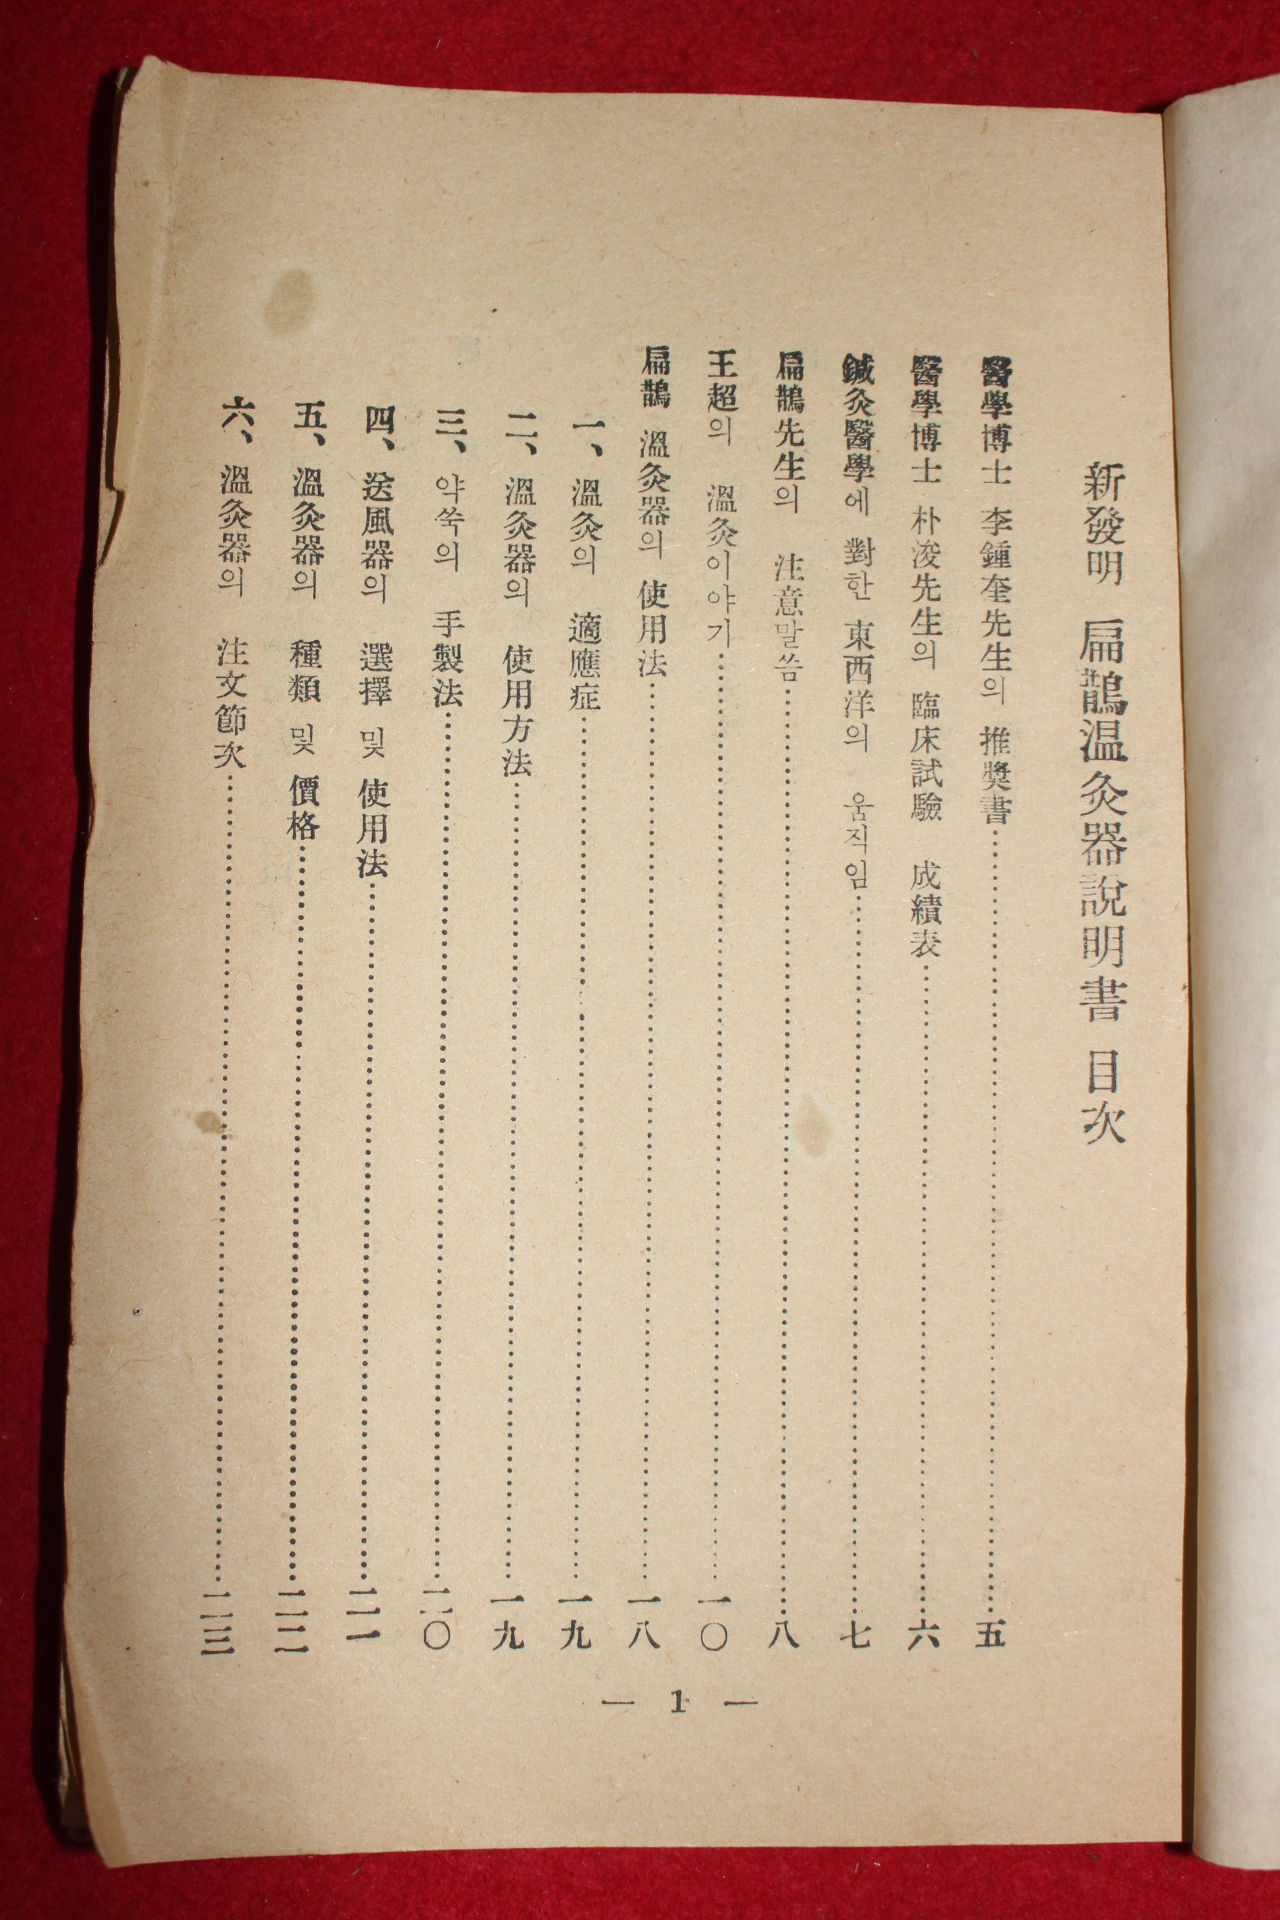 新發明 扁鵲温灸器說明書 目次
醫學博士 李鍾奎先生의 推奬書……五
醫學博士 朴浚先生의 臨床試驗 成績表……六
鍼灸醫學에 對한 東西洋의 움직임……七
扁鵲先生의 注意말씀……八
王超의 溫灸이야기……一〇
扁鵲 溫灸器의 使用法……一八
一、溫灸의 適應症……一九
二、溫灸器의 使用方法……一九
三、약쑥의 手製法……二〇
四、送風器의 選擇 및 使用法……二一
五、溫灸器의 種類 및 價格……二二
六、溫灸器의 注文節次……二三
— 1 —